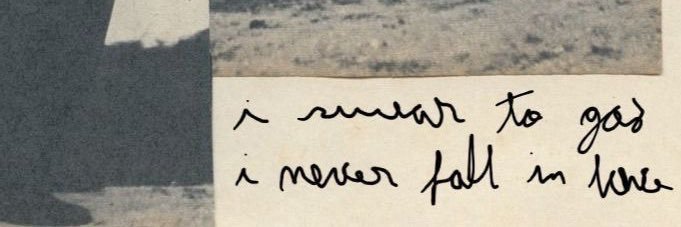 i swear to god
i never fall in love